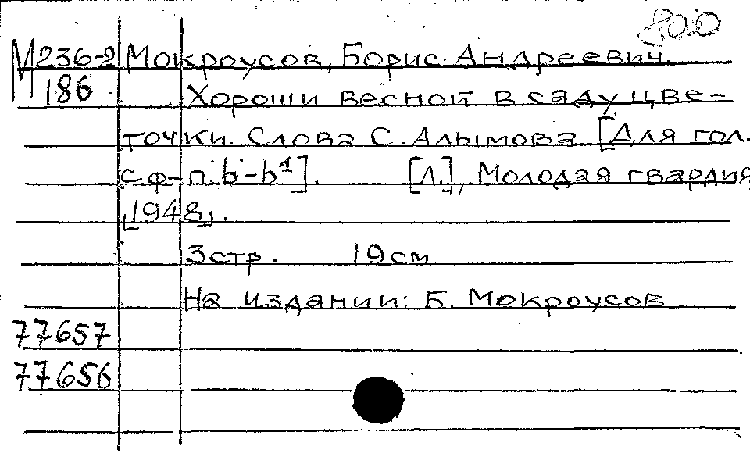 800
М236-2 Мокроусов, Борис Андреевич.
186 Хороши весной в саду цве-
точки. Слова С. Алымова. [Для гол.
с ф-п. b-b¹]. [Л.], Молодая гвардия
[1948].
3стр. 19см
На издании: Б. Мокроусов
77657
77656